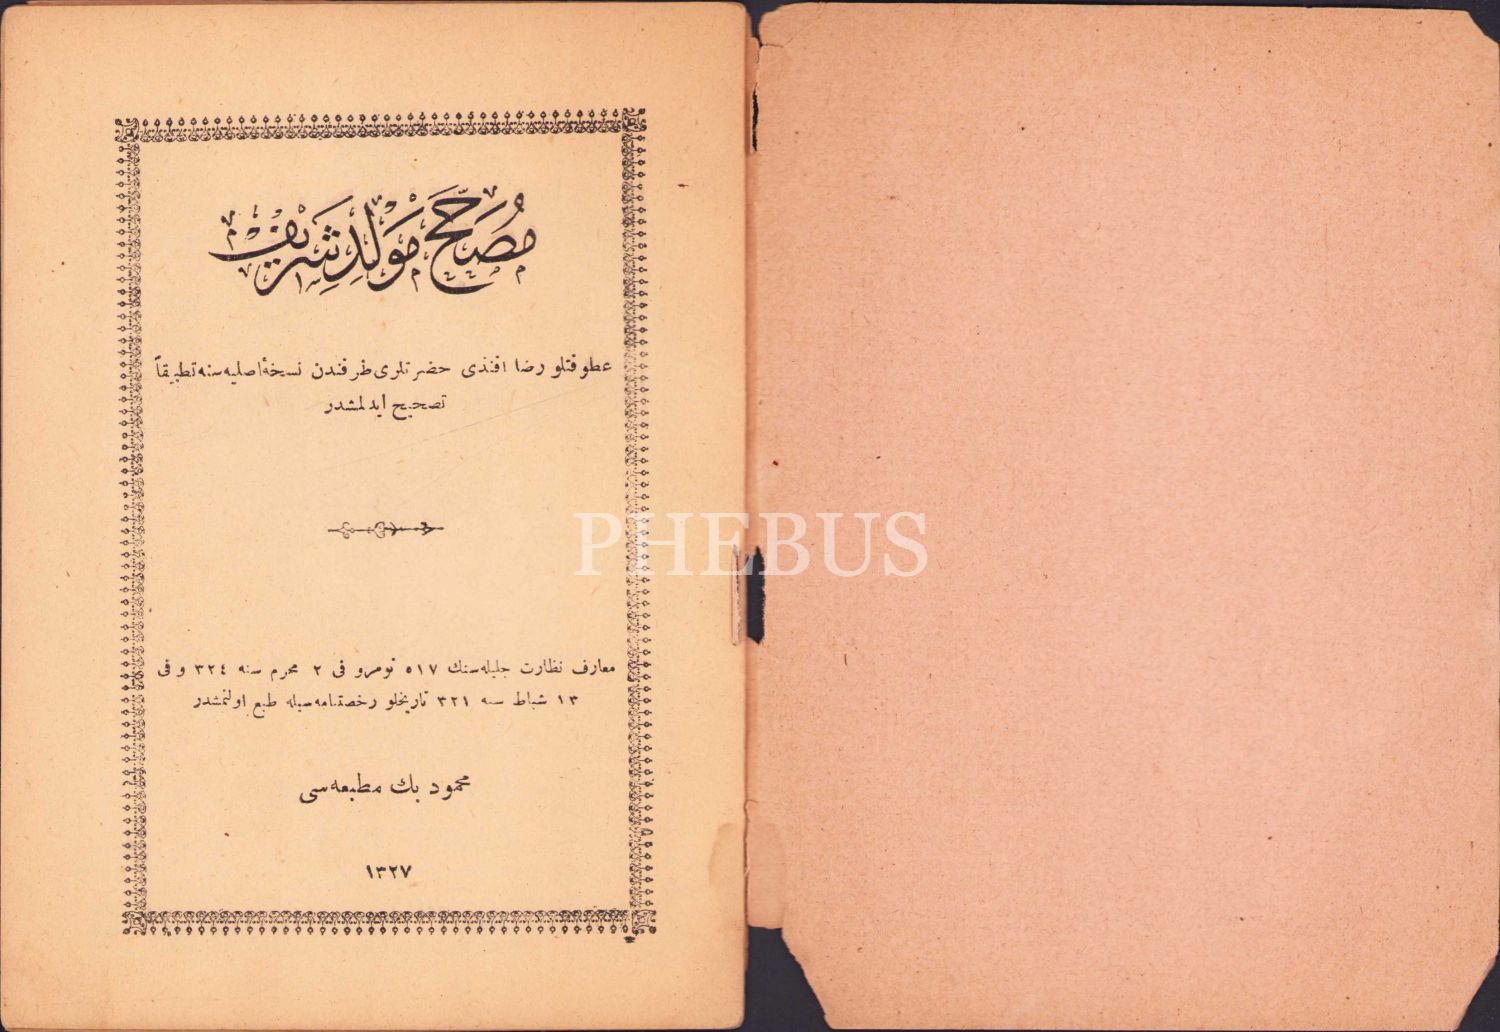 مُصَحَّح مَوْلِدِ شَرِيف
عطوفتلو رضا افندی حضرتلری طرفندن نسخهٔ اصلیه‌سنه تطبیقاً
تصحیح ایدلمشدر
PHEBUS
معارف نظارت جلیله‌سنك ٥١٧ نومرو فی ٢ محرم سنه ٣٢٤ و فی
١٣ شباط سنه ٣٢١ تاریخلو رخصتنامه‌سیله طبع اولنمشدر
محمود بك مطبعه‌سی
١٣٢٧